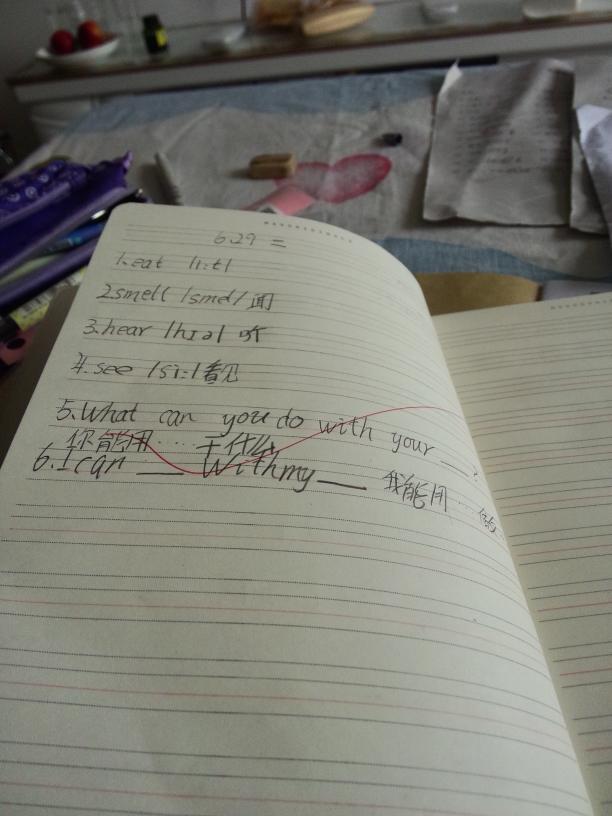 6.29 二
1.eat /i:t/
2.smell /smel/ 闻
3.hear /hɪə/ 听
4.see /si:/ 看见
5.What can you do with your __?
你能用······干什么
6.I can __ with my __ 我能用···做